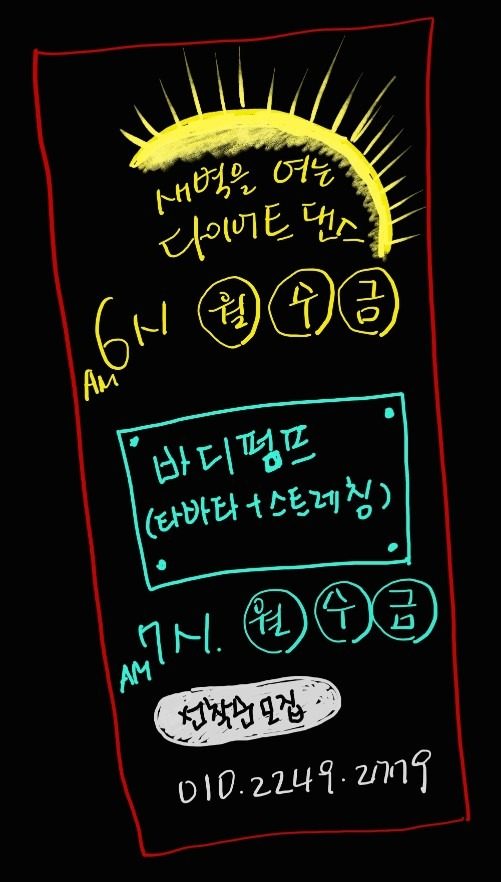 새벽을 여는
다이어트 댄스
AM 6시 월 수 금
바디펌프
(타바타+스트레칭)
AM 7시. 월 수 금
선착순 모집
010.2249.2779